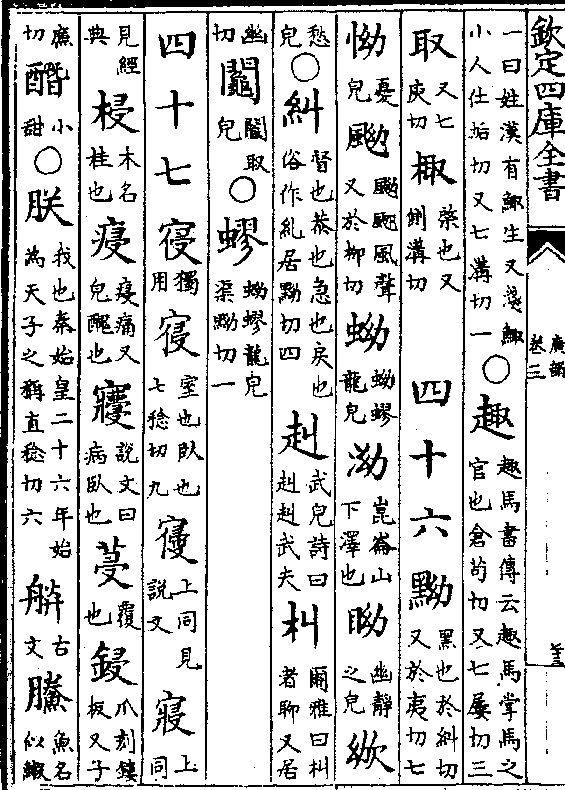 欽定四庫全書
廣韻
卷三
一曰姓漢有鯫生又淺鯫小人仕垢切又七溝切一○趣趣馬書傳云趣馬掌馬之官也倉苟切又七屢切三
取又七庾切棷棨也又側溝切 四十六黝黑也於糾切又於夷切七
怮憂皃䬀䬀䬀風聲又於柳切蚴蚴蟉龍皃泑崑崙山下澤也眑幽靜之皃㱊
愁皃○糾督也恭也急也戾也俗作糺居黝切四赳武皃詩曰赳赳武夫朻爾雅曰朻者聊又居
幽切鬮鬮取皃○蟉蚴蟉龍皃渠黝切一
四十七寑獨用寑室也臥也七稔切九寑上同見說文寢上同
見經典梫木名桂也㾛㾛痛又皃醜也㝲說文曰病臥也葠覆也鋟爪刻鏤板又子
廉切醋小甜○朕我也秦始皇二十六年始為天子之稱直稔切六䑣古文䲍魚名似鰕